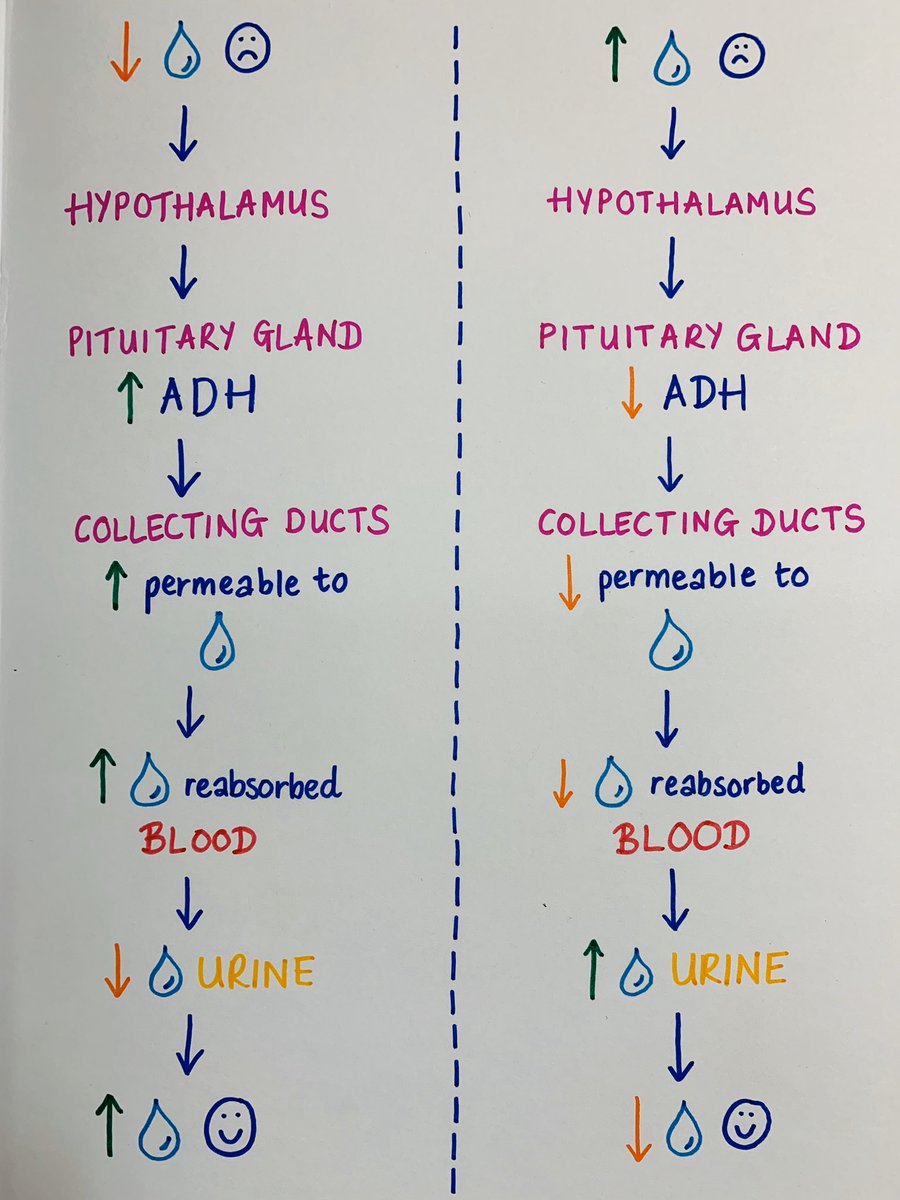 HYPOTHALAMUS
PITUITARY GLAND
↑ ADH
COLLECTING DUCTS
↑ permeable to
↑ reabsorbed
BLOOD
↓ URINE
HYPOTHALAMUS
PITUITARY GLAND
↓ ADH
COLLECTING DUCTS
↓ permeable to
↓ reabsorbed
BLOOD
↑ URINE